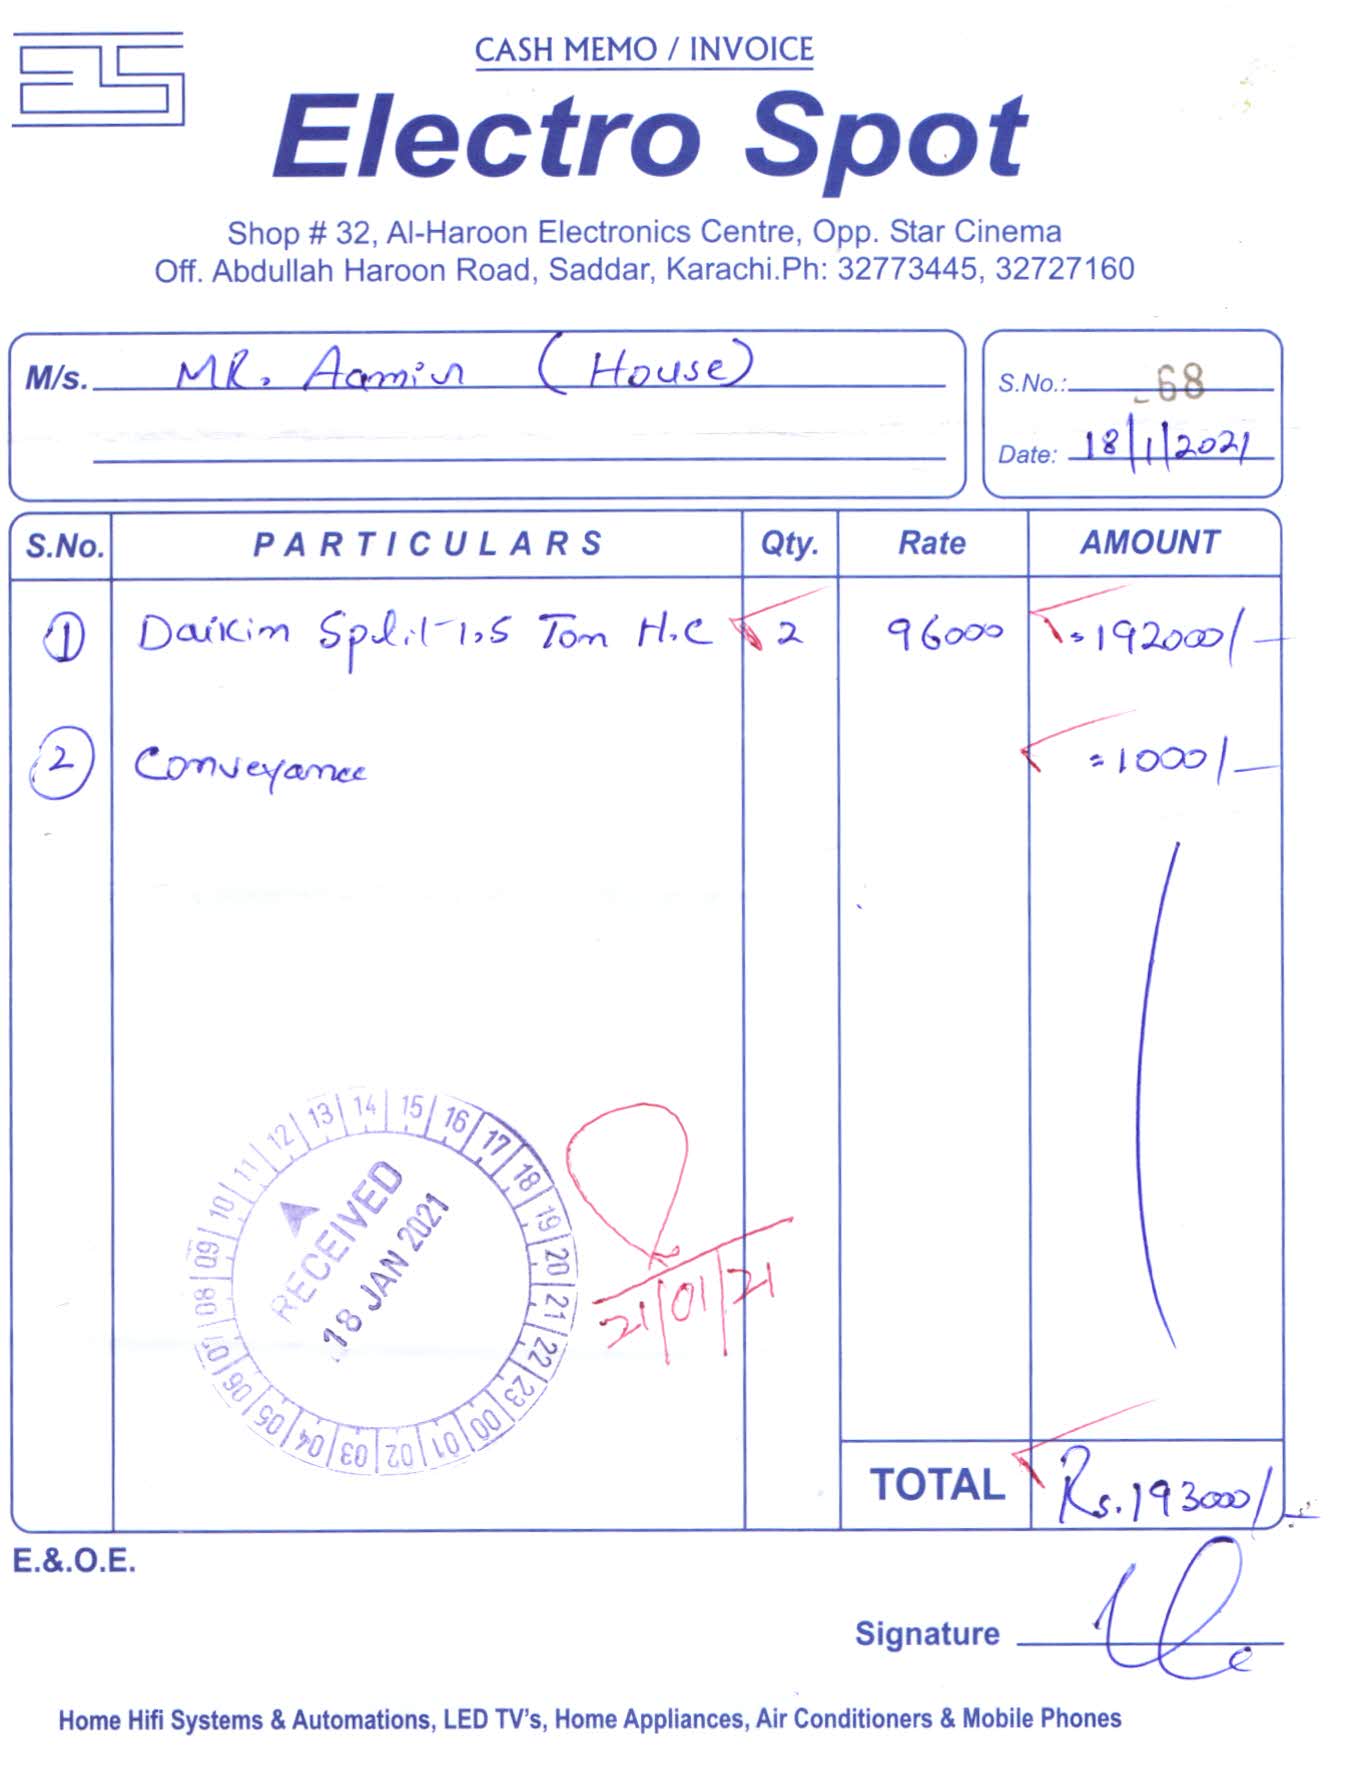 CASH MEMO / INVOICE
ES
Electro Spot
Shop # 32, Al-Haroon Electronics Centre, Opp. Star Cinema
Off. Abdullah Haroon Road, Saddar, Karachi.Ph: 32773445, 32727160
M/s. MR. Aamir (House)
S.No.: 68
Date: 18/1/2021
S.No. PARTICULARS Qty. Rate AMOUNT
1 Daikin Split 1.5 Ton H.C 2 96000 =192000/-
2 Conveyance =1000/-
13 14 15 16 17 18 19 20 21 22 23 00 01 02 03 04 05 06 07 08 09 10 11 12
RECEIVED
18 JAN 2021
21/01/21
TOTAL Rs.193000/-
E.&.O.E.
Signature
Home Hifi Systems & Automations, LED TV's, Home Appliances, Air Conditioners & Mobile Phones